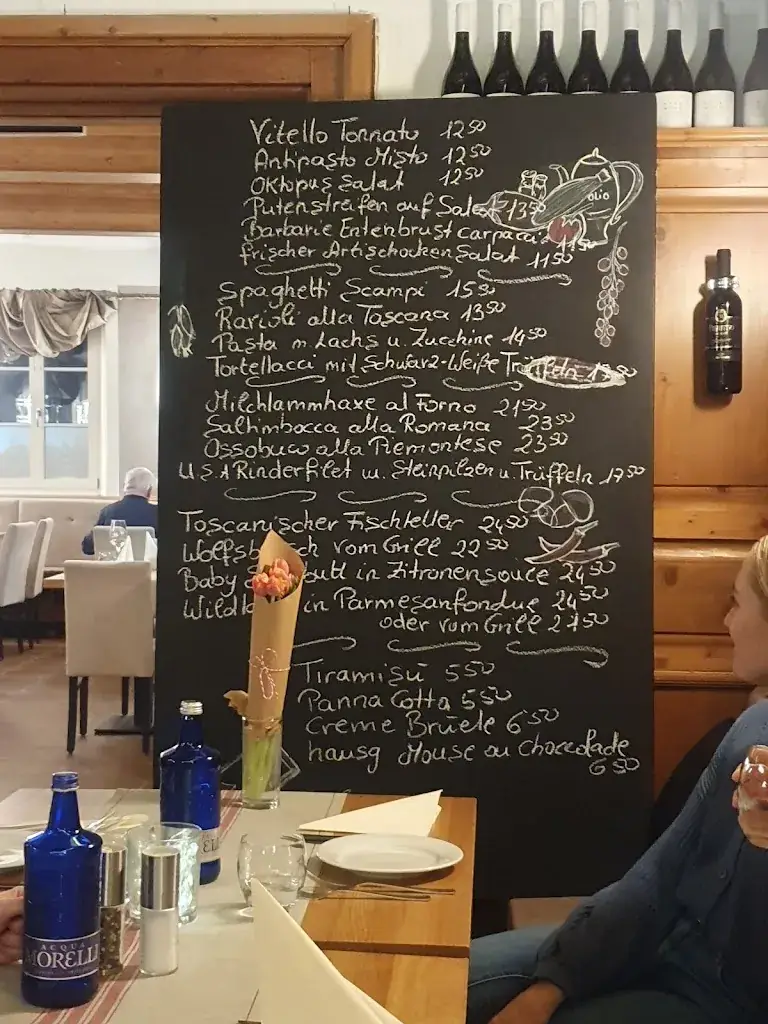 Vitello Tonnato 12 50
Antipasto Misto 12 50
Oktopus Salat 12 50
Putenstreifen auf Salat 13 50
Barbarie Entenbrust carpaccio 11 50
frischer Artischocken Salat 11 50
Spaghetti Scampi 15 50
Ravioli alla Toscana 13 50
Pasta m. Lachs u. Zucchine 14 50
Tortellacci mit Schwarz-Weiße Trüffeln
Milchlammhaxe al Forno 21 50
Saltimbocca alla Romana 23 50
Ossobuco alla Piemontese 23 50
U.S.A Rinderfilet m. Steinpilzen u. Trüffeln
Toscanischer Fischteller 24 50
vom Grill 22 50
Baby in Zitronensouce 24 50
in Parmesanfondue 24 50
oder vom Grill
Tiramisu 5 50
Panna Cotta 5 50
Creme Bruele 6 50
hausg Mouse au Choccolade
6 50
OLIO
ACQUA
MORELLI